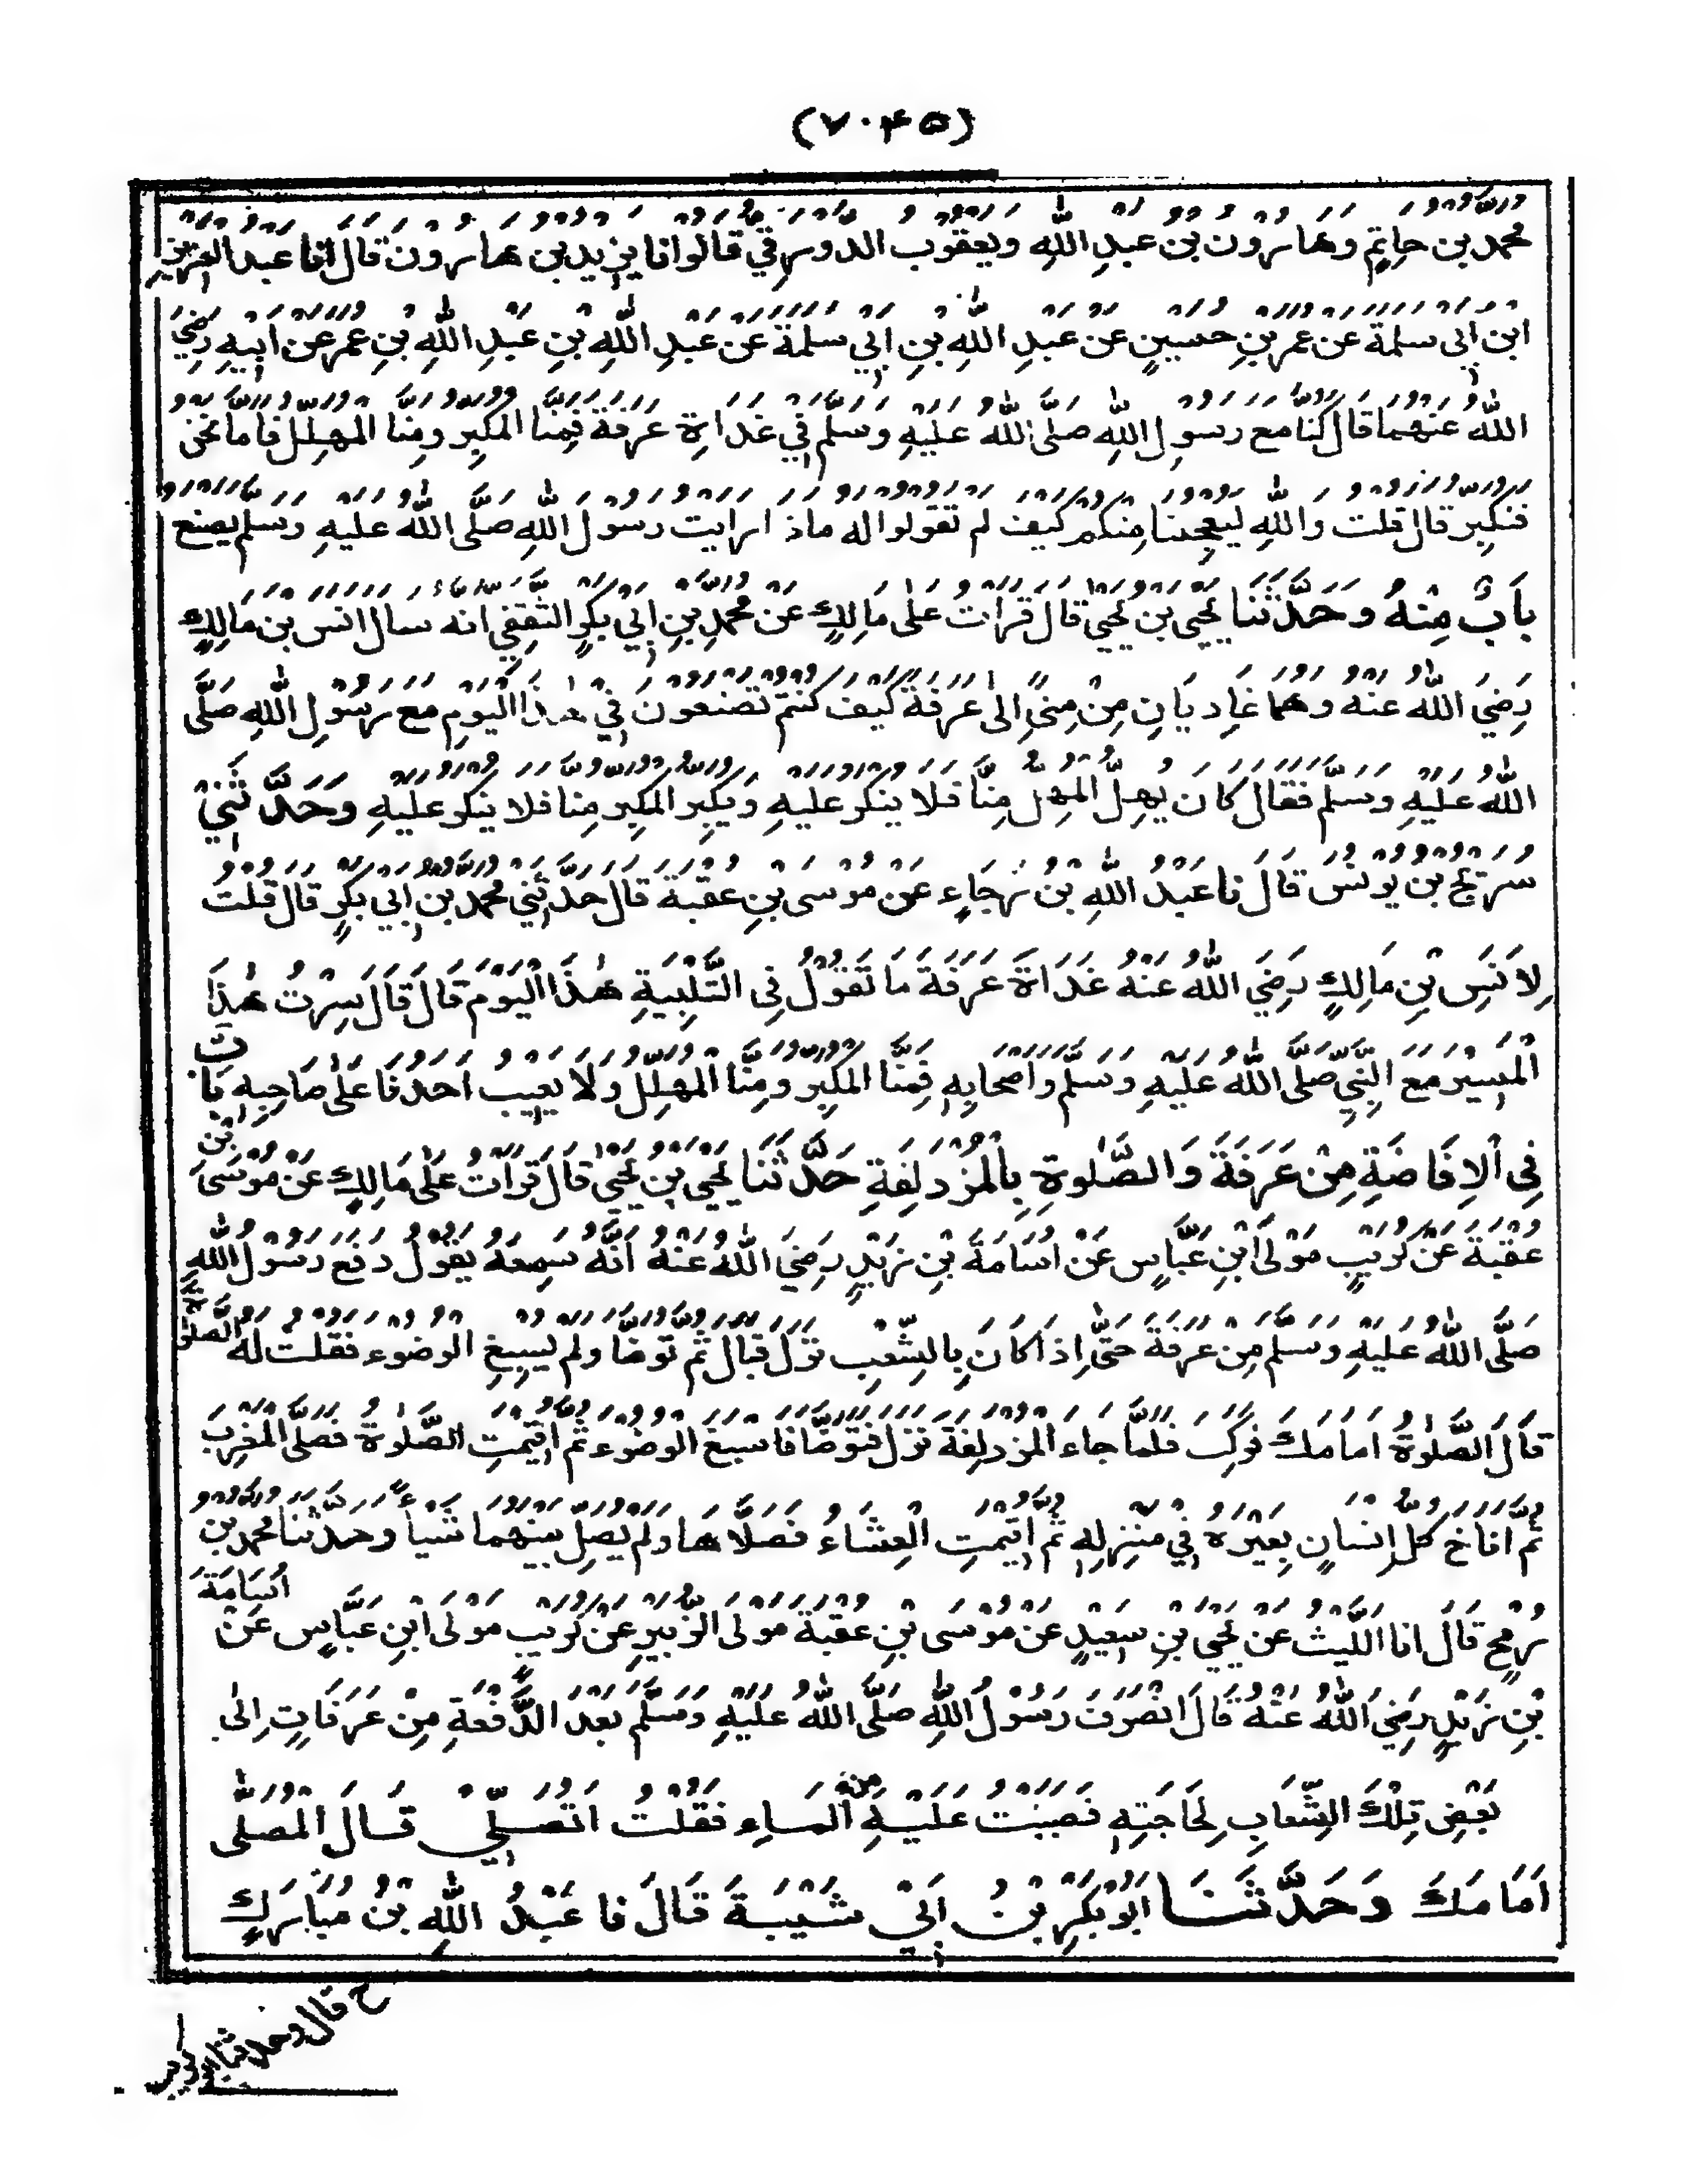 (٧٠٣٥)
محمد بن حاتم وهارون بن عبد الله ويعقوب الدورقي قالوا نا يزيد بن هارون قال انا عبد العزيز
ابن ابي سلمة عن عمر بن حسين عن عبد الله بن ابي سلمة عن عبد الله بن عبد الله بن عمر عن ابيه رضي
الله عنهما قال كنا مع رسول الله صلى الله عليه وسلم في غداة عرفة فمنا المكبر ومنا المهلل فاما نحن
فنكبر قال قلت والله ليعجبنا منكم كيف لم تقولوا له ماذا رايت رسول الله صلى الله عليه وسلم يصنع
باب منه وحدثنا يحيى بن يحيى قال قرات على مالك عن محمد بن ابي بكر الثقفي انه سال انس بن مالك
رضي الله عنه وهما غاديان من منى الى عرفة كيف كنتم تصنعون في هذا اليوم مع رسول الله صلى
الله عليه وسلم فقال كان يهل المهل منا فلا ينكر عليه ويكبر المكبر منا فلا ينكر عليه وحدثني
سريج بن يونس قال نا عبد الله بن رجاء عن موسى بن عقبة قال حدثني محمد بن ابي بكر قال قلت
لانس بن مالك رضي الله عنه غداة عرفة ما تقول في التلبية هذا اليوم قال قال سرت هذا
المسير مع النبي صلى الله عليه وسلم واصحابه فمنا المكبر ومنا المهلل ولا يعيب احدنا على صاحبه باب
في الافاضة من عرفة والصلوة بالمزدلفة حدثنا يحيى بن يحيى قال قرات على مالك عن موسى بن
عقبة عن كريب مولى ابن عباس عن اسامة بن زيد رضي الله عنه انه سمعه يقول دفع رسول الله
صلى الله عليه وسلم من عرفة حتى اذا كان بالشعب نزل فبال ثم توضا ولم يسبغ الوضوء فقلت له الصلوة
قال الصلوة امامك فركب فلما جاء المزدلفة نزل فتوضا فاسبغ الوضوء ثم اقيمت الصلوة فصلى المغرب
ثم اناخ كل انسان بعيره في منزله ثم اقيمت العشاء فصلاها ولم يصل بينهما شيأ وحدثنا محمد بن
رمح قال انا الليث عن يحيى بن سعيد عن موسى بن عقبة مولى الزبير عن كريب مولى ابن عباس عن اسامة
بن زيد رضي الله عنه قال انصرف رسول الله صلى الله عليه وسلم بعد الدفعة من عرفات الى
بعض تلك الشعاب لحاجته فصببت عليه من الماء فقلت اتصلي قال المصلى
امامك وحدثنا ابو بكر بن ابي شيبة قال نا عبد الله بن مبارك
ح قال وحدثنا ابو كريب